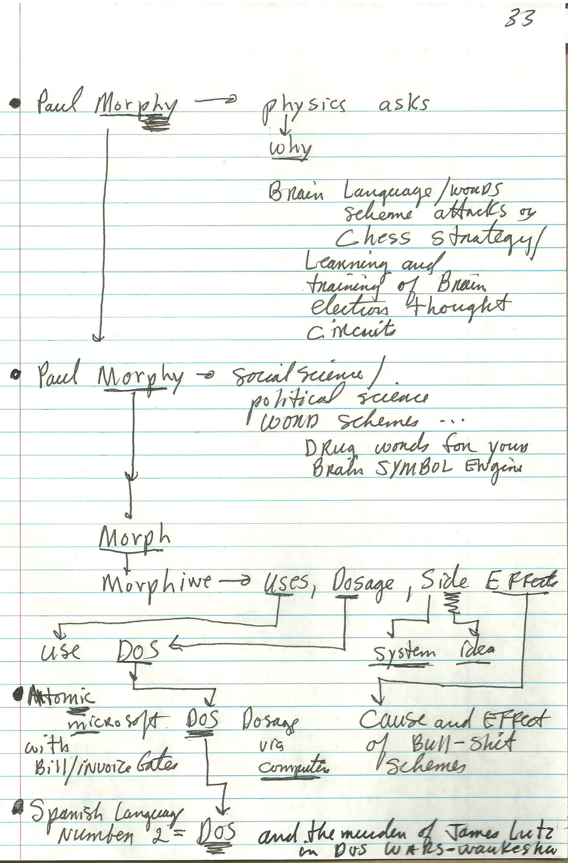 33
• Paul Morphy → physics asks
why
Brain Language/words
scheme attacks or
Chess strategy/
Learning and
training of Brain
electron thought
circuits
• Paul Morphy → social science/
political science
word schemes ...
Drug words for your
Brain SYMBOL Engine
Morph
Morphine → uses, Dosage, Side Effect
use DOS system idea
• Atomic
microsoft DOS Dosage
with via
Bill/invoice Gates computer
Cause and Effect
of Bull-shit
schemes
• Spanish Language
Number 2 = DOS and the murder of James Lutz
in DOS WARS-Waukesha